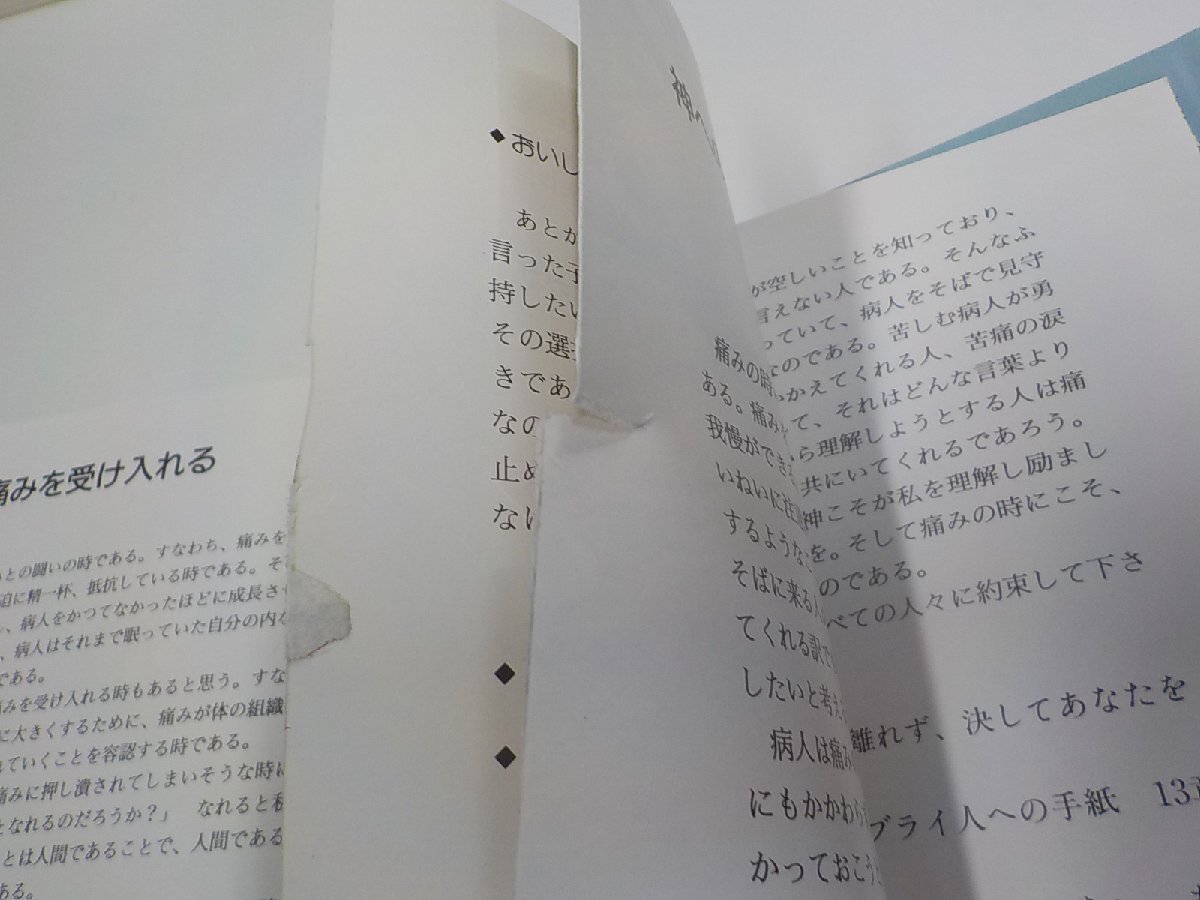 痛みを受け入れる
との闘いの時である。すなわち、痛みを
迫に精一杯、抵抗している時である。そ
、病人をかつてなかったほどに成長さ
、病人はそれまで眠っていた自分の内な
である。
みを受け入れる時もあると思う。すな
に大きくするために、痛みが体の組織
れていくことを容認する時である。
痛みに押し潰されてしまいそうな時に
となれるのだろうか?」 なれると私
とは人間であることで、人間である
ある。
◆おいし
あとが
言った子
持したい
その選
きであ
なの
止め
なに
◆
◆
神へ
痛みの時
ある。痛み
我慢ができ
いねいに
するような
そばに来る
てくれる訳で
したいと考え
病人は痛み
にもかかわら
かっておこう
が空しいことを知っており、
言えない人である。そんなふ
っていて、病人をそばで見守
なのである。苦しむ病人が勇
かえてくれる人、苦痛の涙
て、それはどんな言葉より
ら理解しようとする人は痛
共にいてくれるであろう。
神こそが私を理解し励まし
を。そして痛みの時にこそ、
のである。
べての人々に約束して下さ
離れず、決してあなたを
ブライ人への手紙 13章